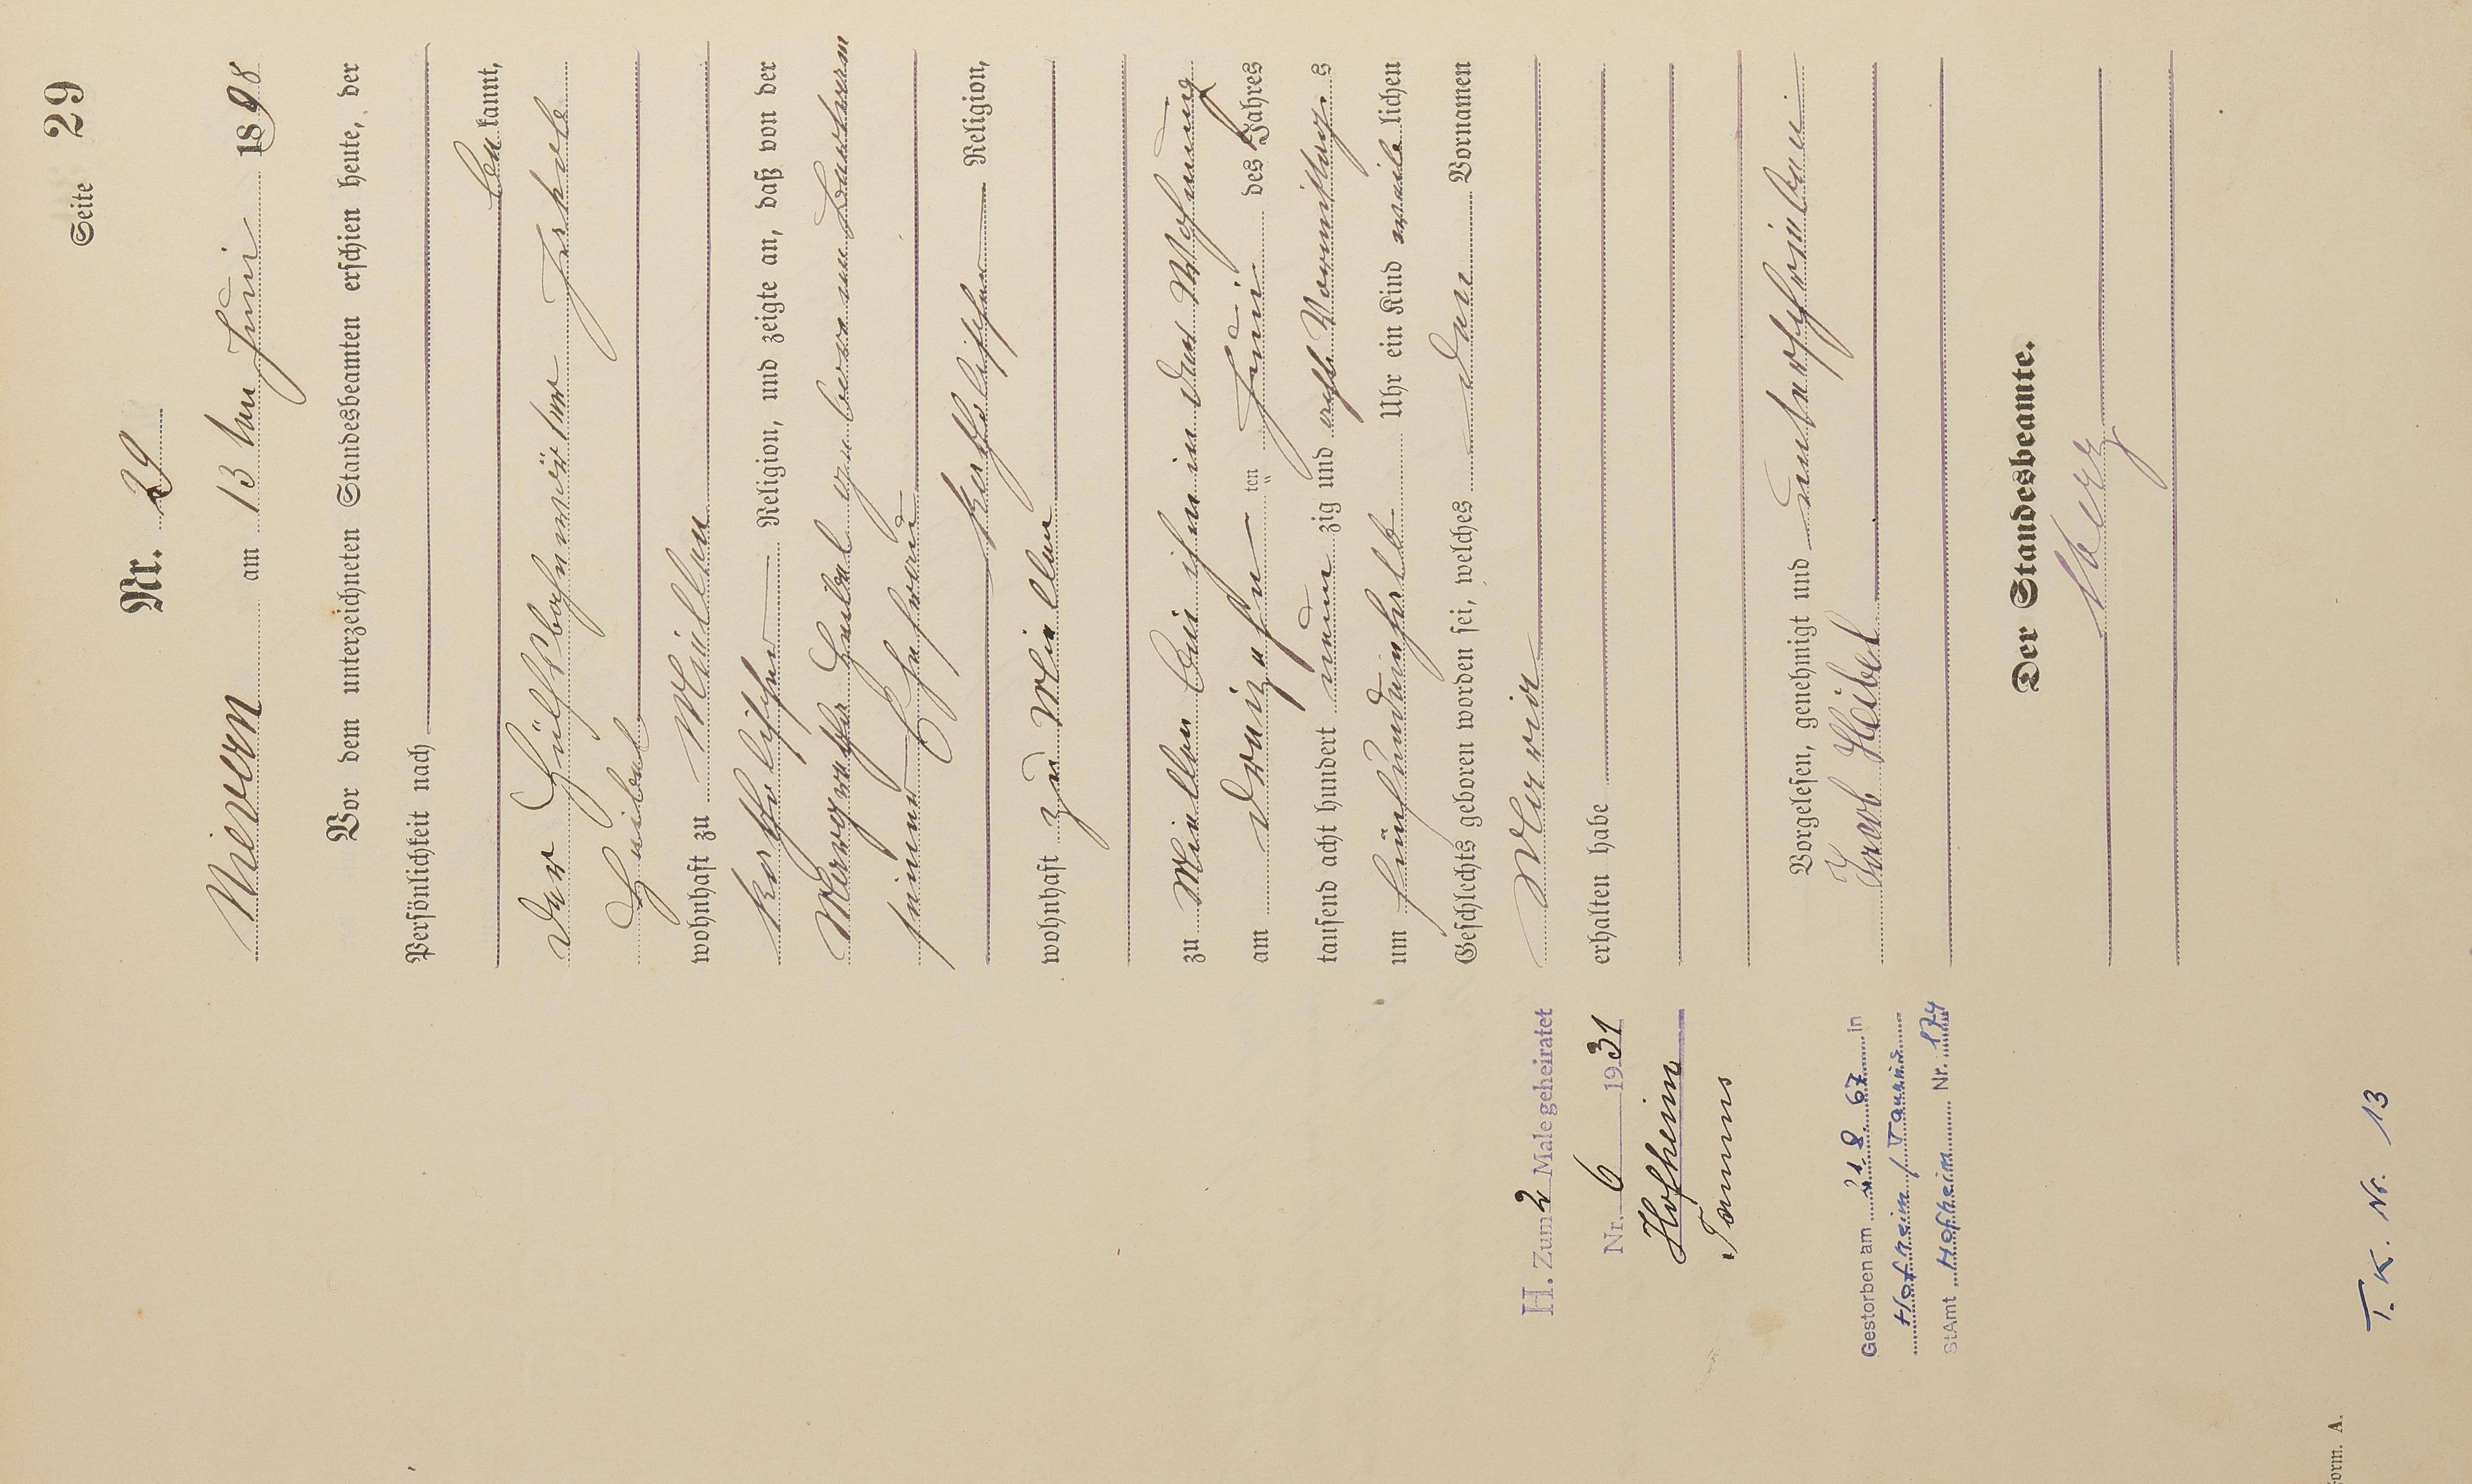 Seite 29
Nr. 29
Nievern am 13ten Juni 1898
Vor dem unterzeichneten Standesbeamten erschien heute, der
Persönlichkeit nach
bekannt,
der Hülfsbahnwärter Jakob
Heibel
wohnhaft zu Miellen
katholischer Religion, und zeigte an, daß von der
Margretha Heibel geborenen
seiner Ehefrau
katholischer Religion,
wohnhaft zu Miellen
zu Miellen bei ihm in der Wohnung
am dreizehnten Juni des Jahres
tausend acht hundert neunzig und acht Vormittags
um fünfundeinhalb Uhr ein Kind weiblichen
Geschlechts geboren worden sei, welches den Vornamen
Maria
erhalten habe
Vorgelesen, genehmigt und unterschrieben
Jacob Heibel
Der Standesbeamte.
H. Zum 2 Male geheiratet
Nr. 6 1931
Hofheim
Taunus
Gestorben am 21.8.67 in
Hofheim / Taunus
StAmt Hofheim Nr. 174
T. K. Nr. 13
orm. A.